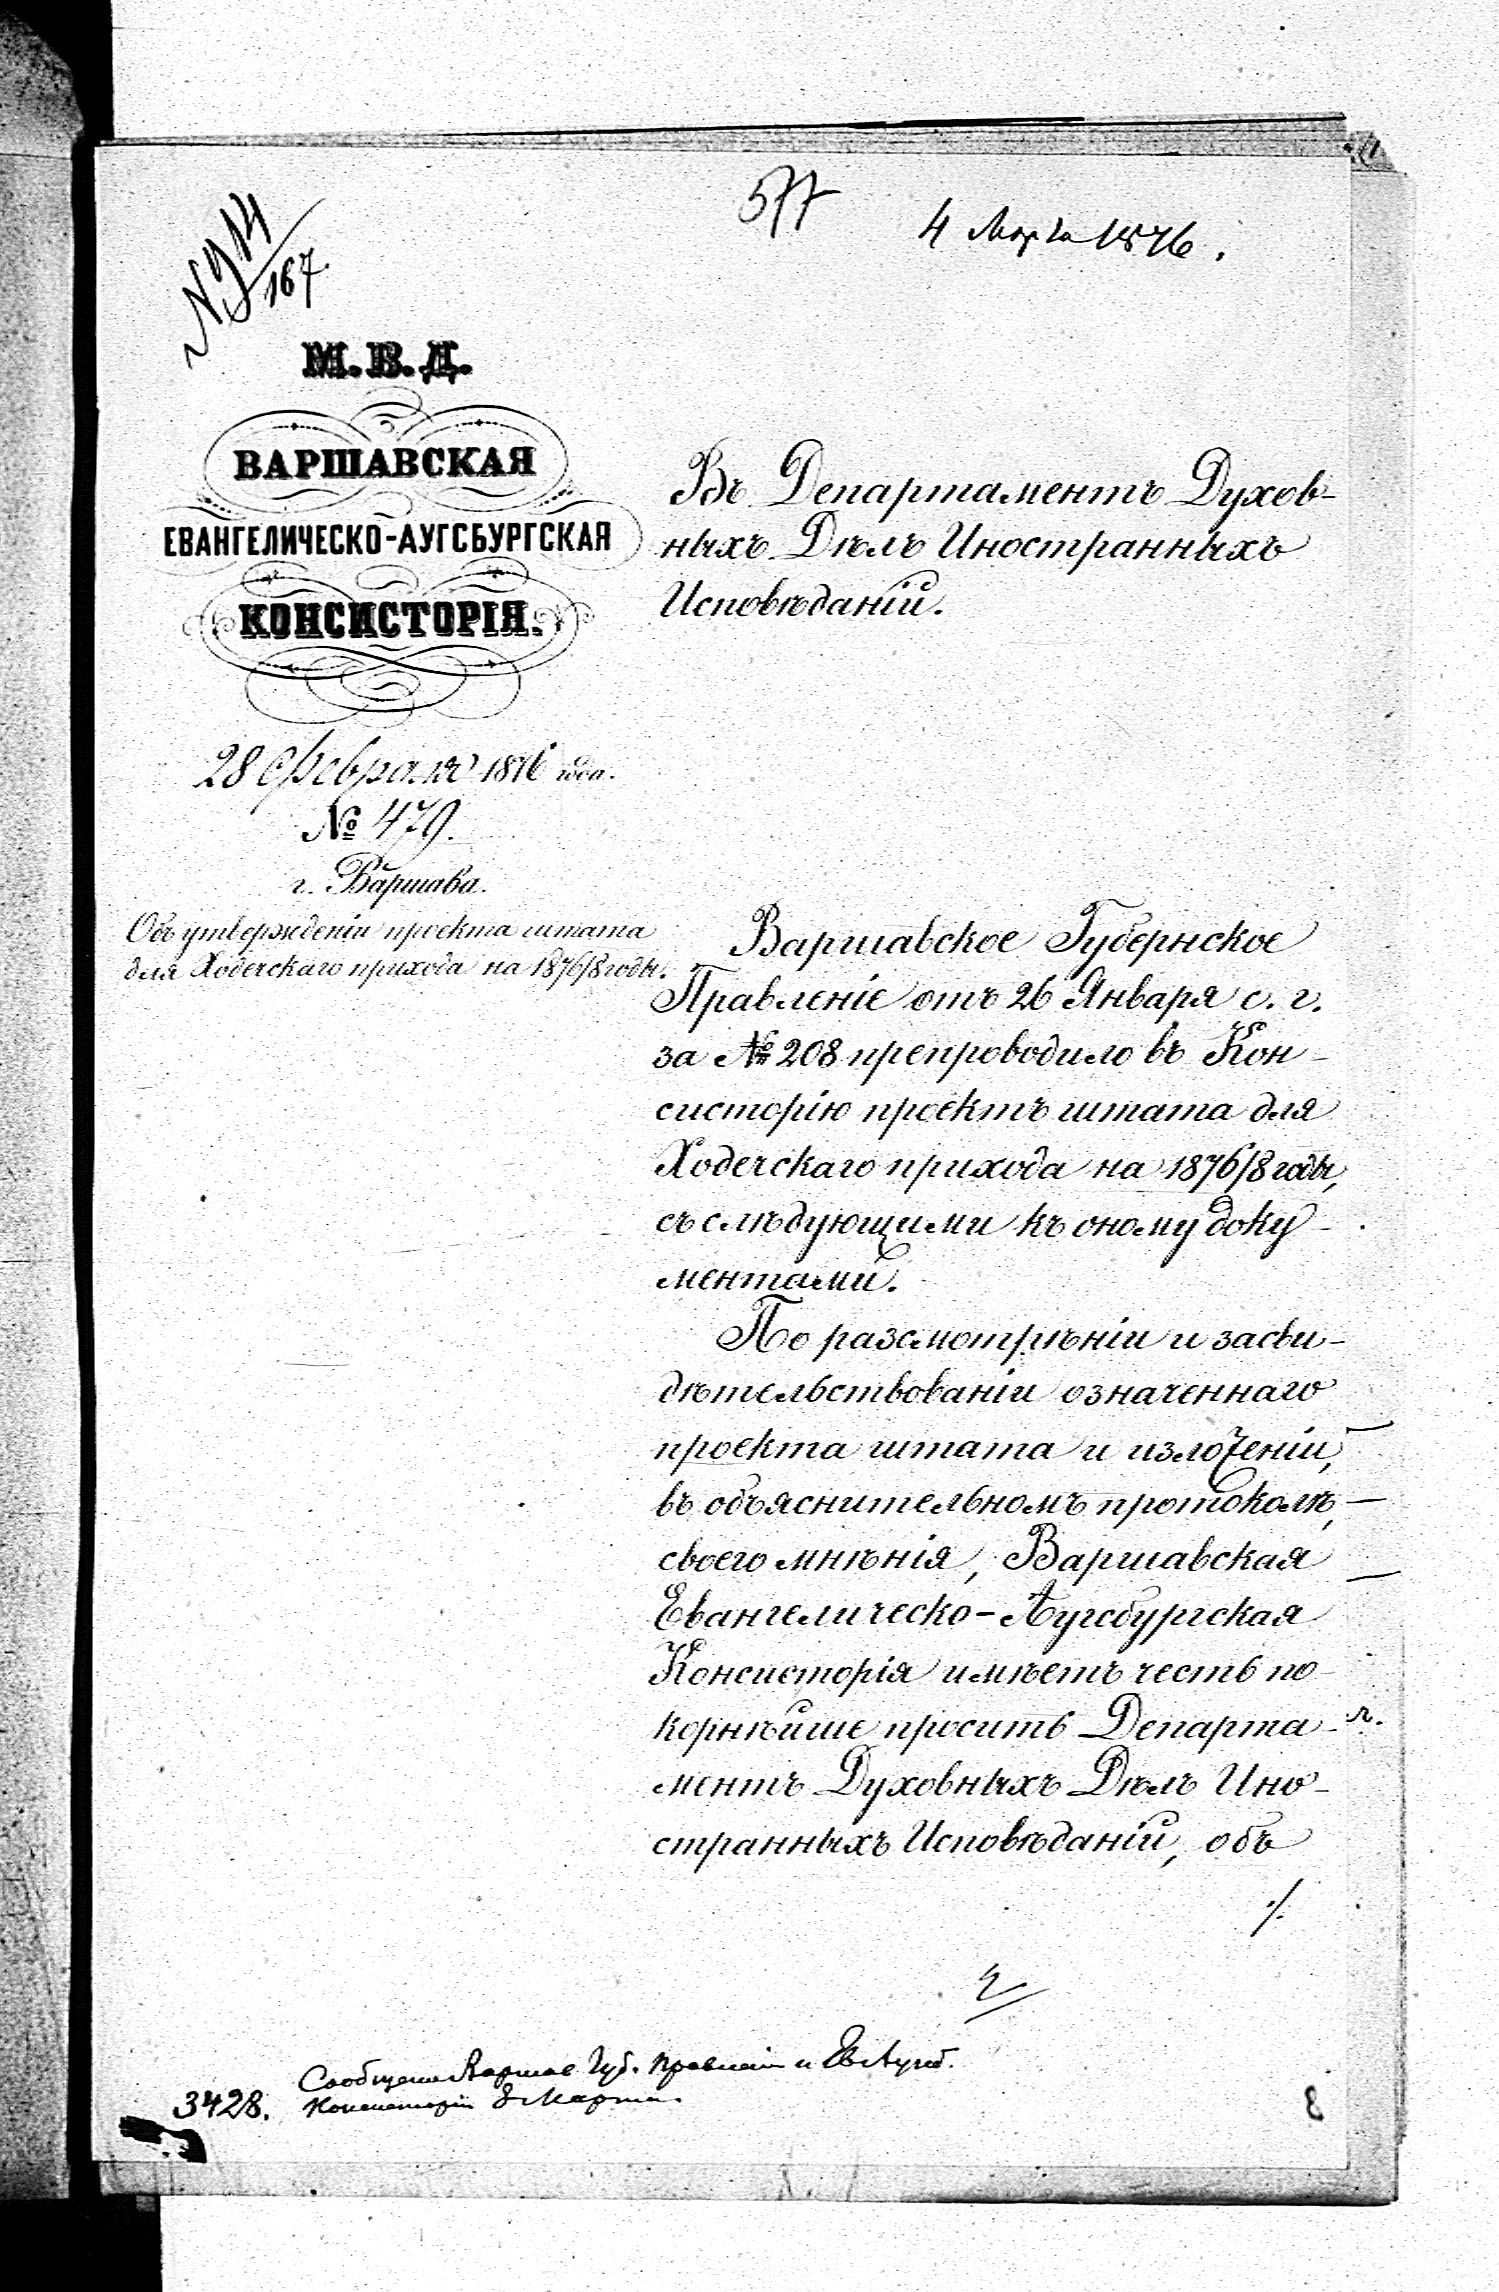 577
4 Марта 1876.
№ 914/167
М. В. Д.
ВАРШАВСКАЯ
ЕВАНГЕЛИЧЕСКО-АУГСБУРГСКАЯ
КОНСИСТОРІЯ.
28 Февраля 1876 года.
№ 479.
г. Варшава.
Объ утвержденіи проекта штата
для Ходечскаго прихода на 1876/8 годы.
Въ Департаментъ Духов-
ныхъ Дѣлъ Иностранныхъ
Исповѣданій.
Варшавское Губернское
Правленіе отъ 26 Января с. г.
за № 208 препроводило въ Кон-
систорію проектъ штата для
Ходечскаго прихода на 1876/8 годы,
съ слѣдующими къ оному доку-
ментами.
По разсмотрѣніи и засви-
дѣтельствованіи означеннаго
проекта штата и изложеніи,
въ объяснительномъ протоколѣ,
своего мнѣнія, Варшавская
Евангелическо-Аугсбургская
Консисторія имѣетъ честь по-
корнѣйше просить Департа-
ментъ Духовныхъ Дѣлъ Ино-
странныхъ Исповѣданій, объ
./.
Сообщено Варшав Губ. Правленію и Ев Аугсб.
3428. Консисторіи 8 Марта.